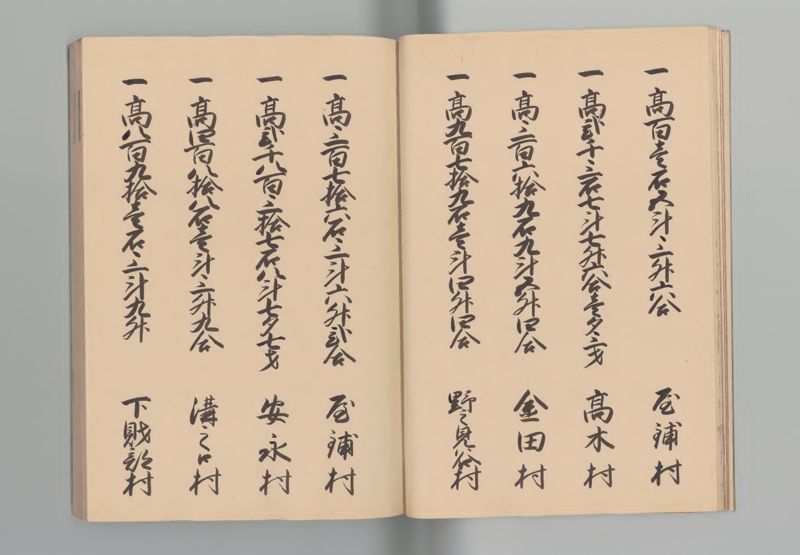 一高百壱石五斗三升六合 屋鋪村
一高弐千三石七斗七升六合壱夕三才 高木村
一高三百六拾九石九斗五升四合 金田村
一高九百七拾九石壱斗四升四合 野々見谷村
一高三百七拾六石三斗六升弐合 屋鋪村
一高弐千八百三拾七石八斗七夕七才 安永村
一高四百八拾八石壱斗三升九合 溝之口村
一高八百九拾壱石三斗九升 下財部村